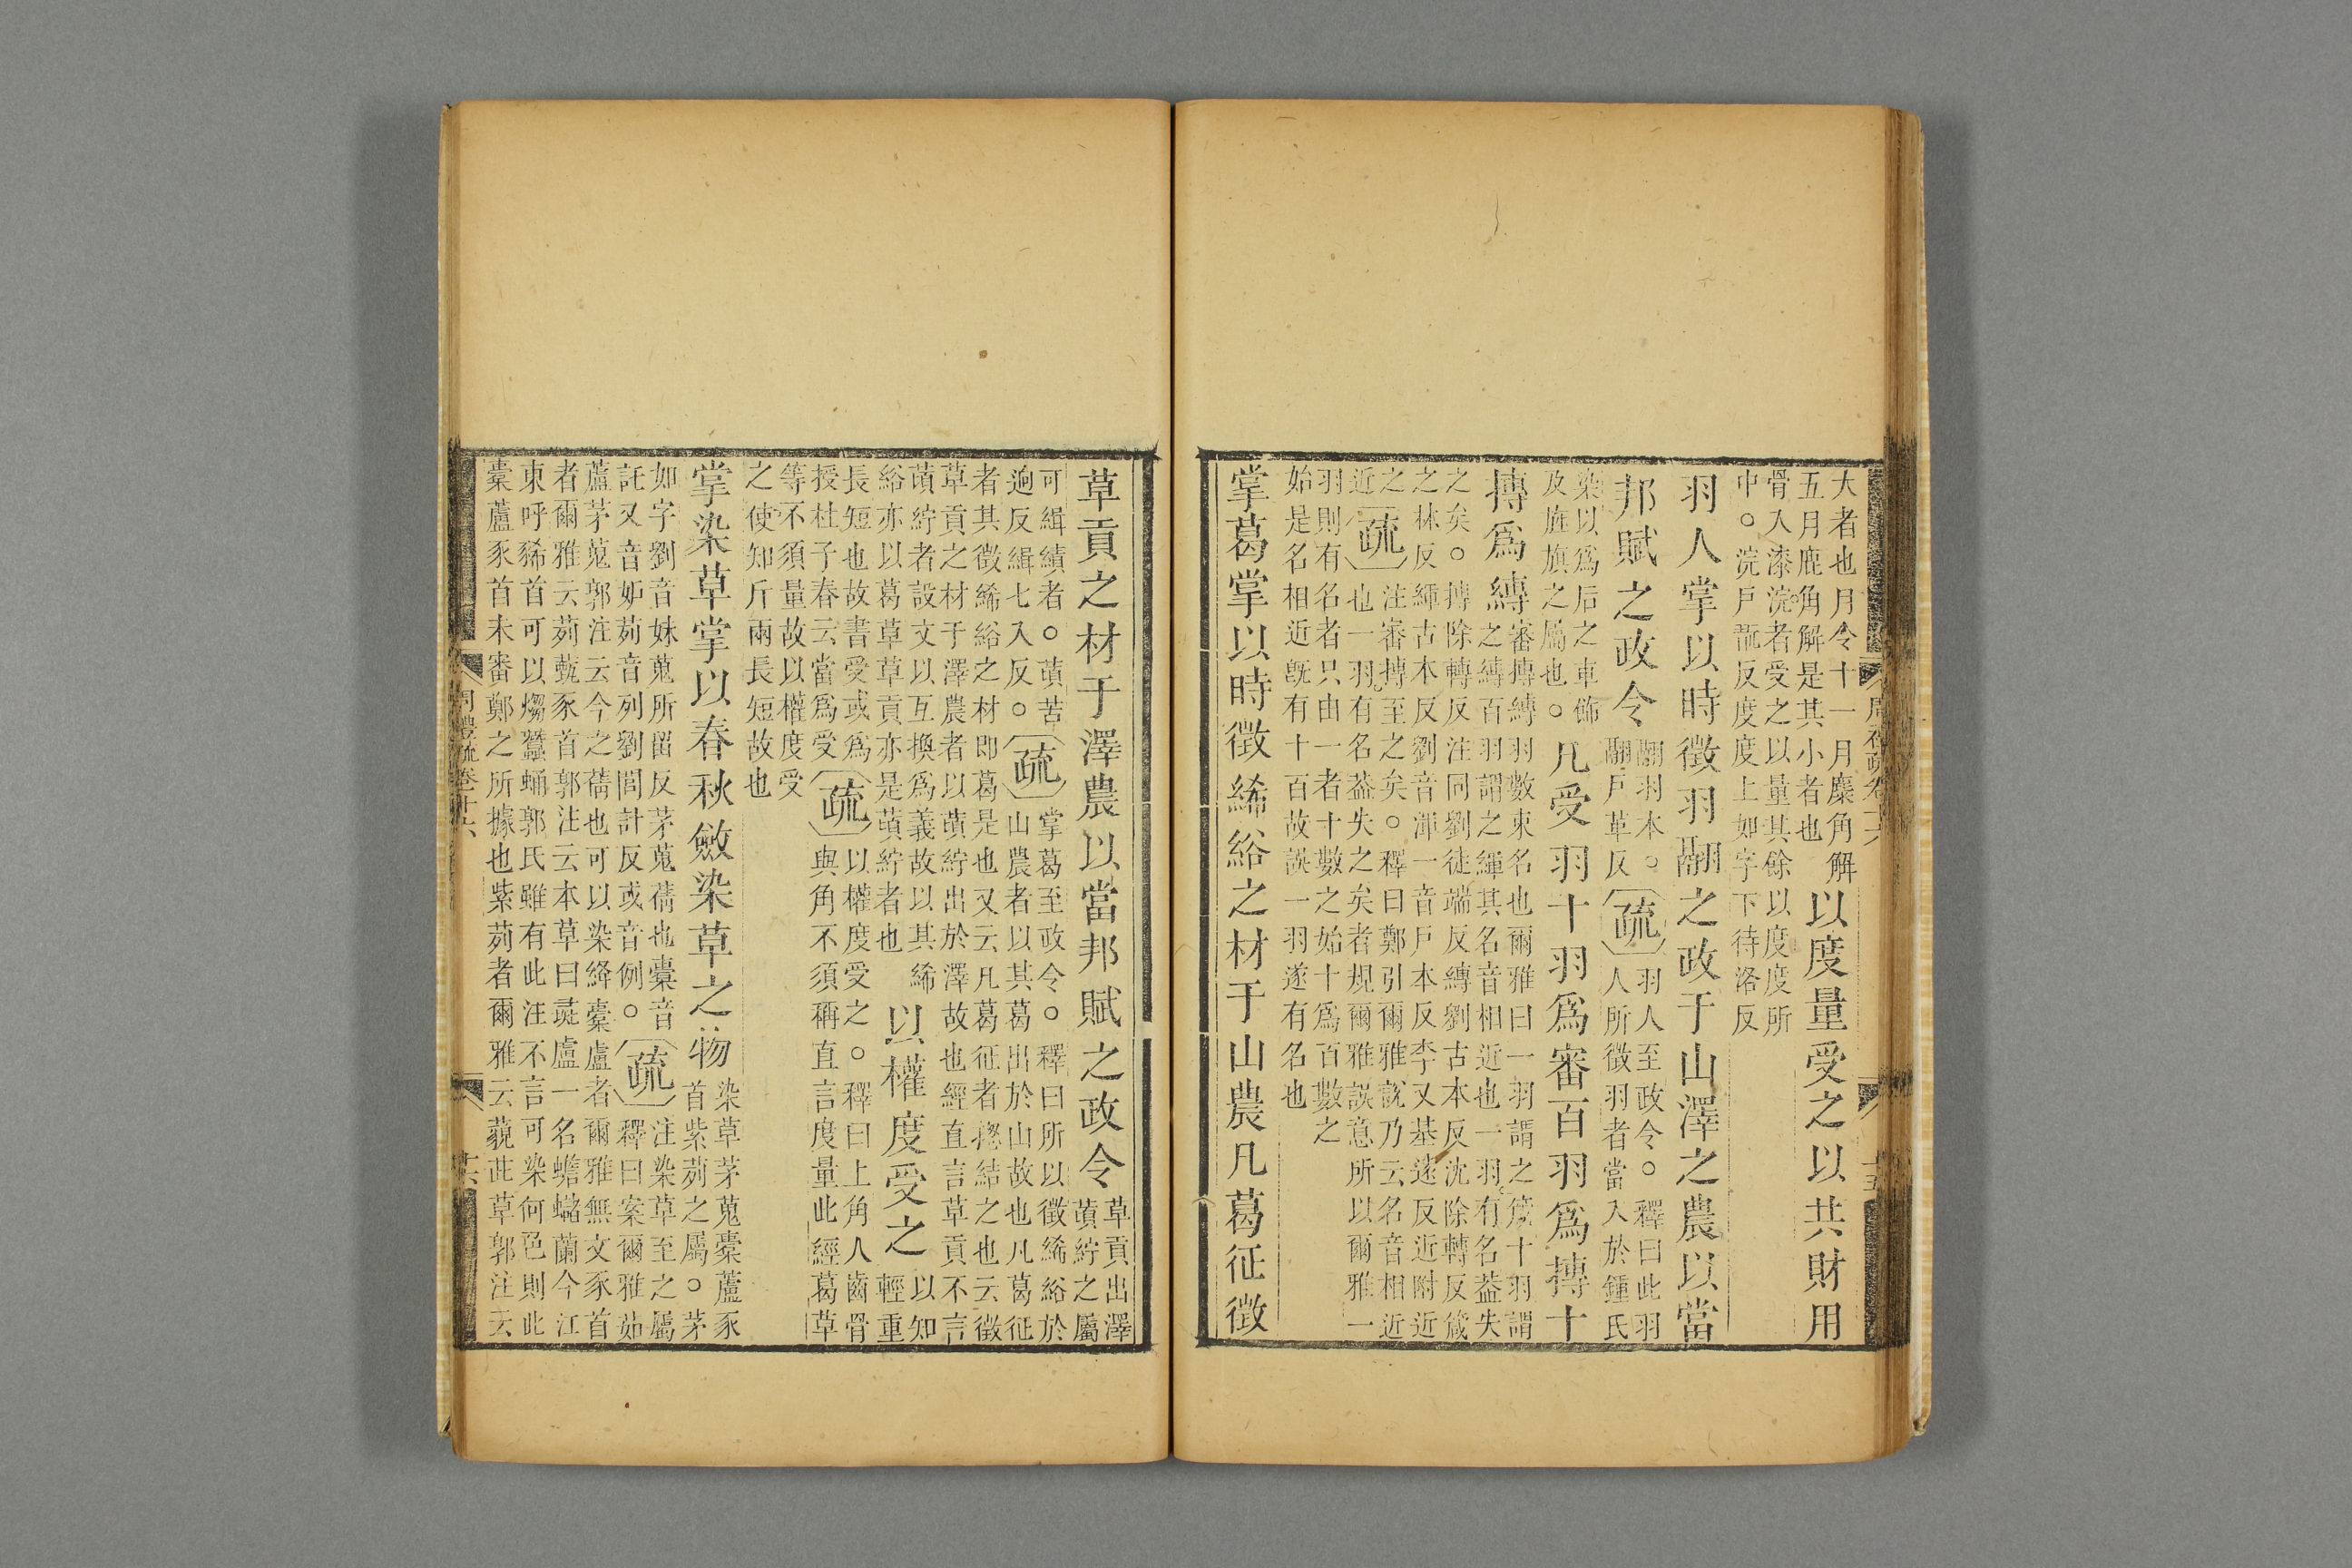 大者也月令十一月麋角解
五月鹿角解是其小者也
以度量受之以共財用
骨入漆浣者受之以量其餘以度度所
中○浣戶翫反度度上如字下待洛反
羽人掌以時徵羽翮之政于山澤之農以當
邦賦之政令
翮羽本○
翮戶革反
疏
羽人至政令○釋曰此羽
人所徵羽者當入於鍾氏
染以為后之車飾
及旌旗之屬也○
凡受羽十羽爲審百羽爲摶十
摶爲縛
審摶縛羽數束名也爾雅曰一羽謂之箴十羽謂
之縛百羽謂之緷其名音相近也一羽有名蓋失
之矣○摶除轉反注同劉徒端反縛劉古本反沈除轉反箴
之林反緷古本反劉音渾一音戶本反李又基遠反近附近
之近
疏
注審摶至之矣○釋曰鄭引爾雅說乃云名音相近
也一羽有名蓋失之矣者規爾雅誤意所以爾雅一
羽則有名者只由一者十數之始十爲百數之
始是名相近既有十百故誤一羽遂有名也
掌葛掌以時徵絺綌之材于山農凡葛征徵
草貢之材于澤農以當邦賦之政令
草貢出澤
萯紵之屬
可緝績者○萯苦
迥反緝七入反○
疏
掌葛至政令○釋曰所以徵絺綌於
山農者以其葛出於山故也凡葛征
者其徵絺綌之材即葛是也又云凡葛征者摠結之也云徵
草貢之材于澤農者以萯紵出於澤故也經直言草貢不言
萯紵者設文以互換爲義故以其絺
綌亦以葛草草貢亦是萯紵者也
以權度受之
以知
輕重
長短也故書受或爲
授杜子春云當爲受
疏
以權度受之○釋曰上角人齒骨
與角不須稱直言度量此經葛草
等不須量故以權度受
之使知斤兩長短故也
掌染草掌以春秋斂染草之物
染草茅蒐橐蘆豕
首紫茢之屬○茅
如字劉音妹蒐所留反茅蒐蒨也橐音
託又音妬茢音列劉閭計反或音例○
疏
注染草至之屬
釋曰案爾雅茹
蘆茅蒐郭注云今之蒨也可以染絳橐盧者爾雅無文豕首
者爾雅云茢薽豕首郭注云本草曰彘盧一名蟾蠩蘭今江
東呼豨首可以煼蠶蛹郭氏雖有此注不言可染何色則此
橐蘆豕首未審鄭之所據也紫茢者爾雅云藐茈草郭注云
周禮疏卷十六
十六